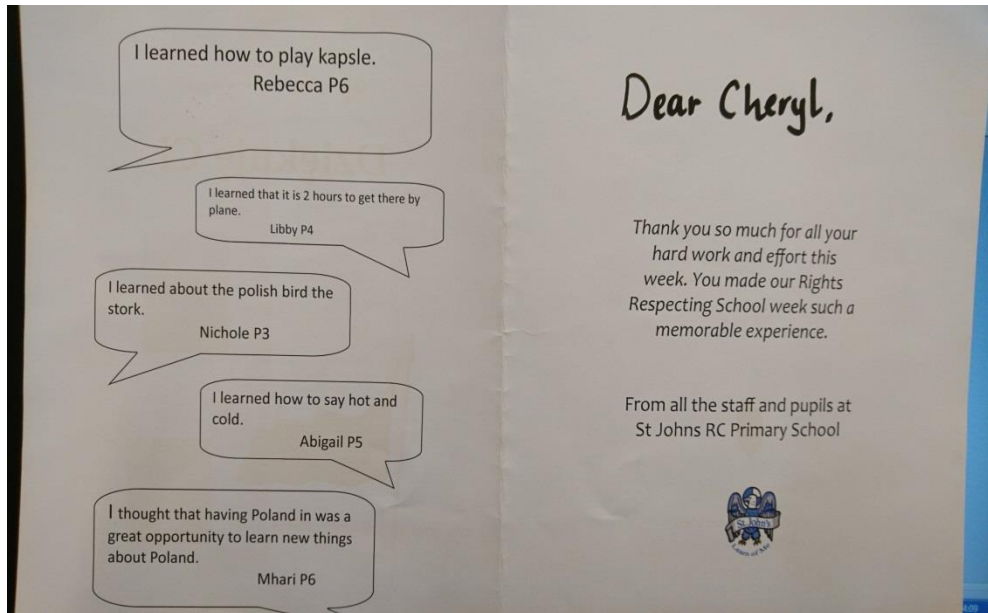 I learned how to play kapsle.
Rebecca P6
I learned that it is 2 hours to get there by
plane.
Libby P4
I learned about the polish bird the
stork.
Nichole P3
I learned how to say hot and
cold.
Abigail P5
I thought that having Poland in was a
great opportunity to learn new things
about Poland.
Mhari P6
Dear Cheryl,
Thank you so much for all your
hard work and effort this
week. You made our Rights
Respecting School week such a
memorable experience.
From all the staff and pupils at
St Johns RC Primary School
St John's
Learn of Me